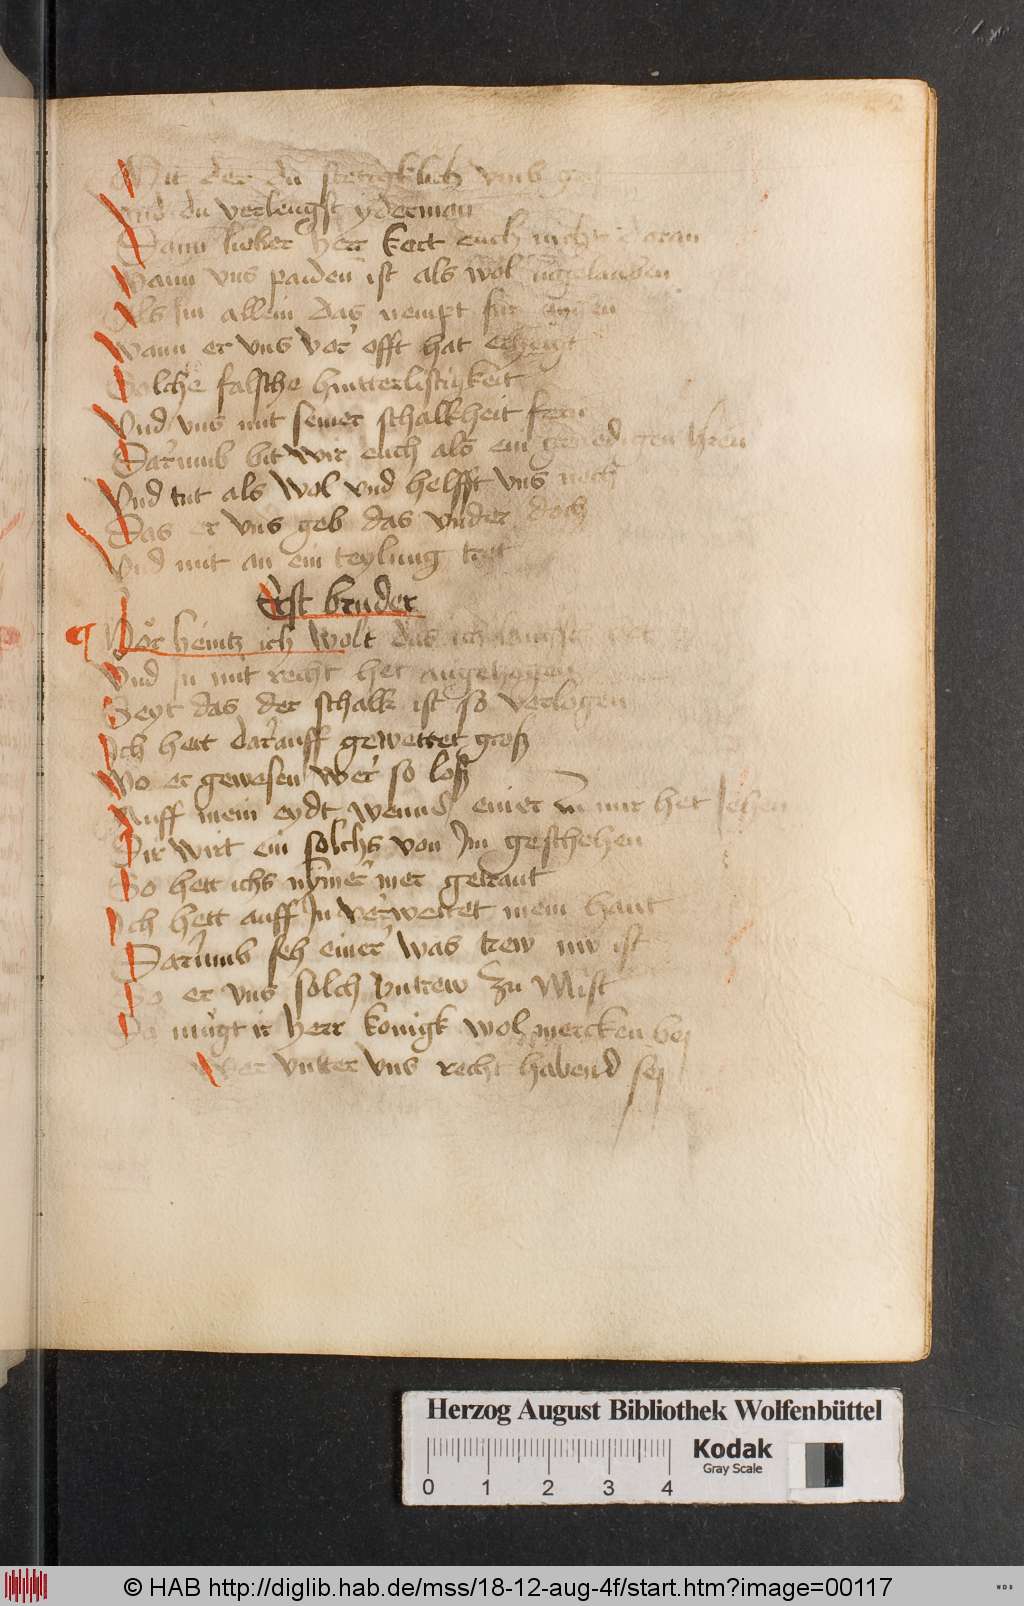 Mit der du stetigklich vmb
Vnd du verleugst yderman
Dann lieber herr kert euch nicht daran
Wann vns paiden ist als wol
Als Im allein das nempt fur
Wann er vns vor offt hat erzeigt
Solche falsche hintterlistigkeit
Vnd vns mit seiner schalkheit
Darumb bit wir euch als ein genedigen hren
Vnd tut als wol vnd helfft vns noch
Das er vns geb das vnder doch
Vnd mit an ein teylung tret
Erst bruder
Hör heintz ich wolt das ich
Vnd In mit recht het angezogen
Seyt das der schalk ist so verlogen
Ich hett darauff gewettet groß
Wo er gewesen wer so loß
Auff mein eydt wenn einer zu mir het Jehen
Dir wirt ein solchs von Im geschehen
So hett ichs nymer mer getraut
Ich hett auff In verwettet mein haut
Darumb seh einer was trew nw ist
So er vns solch vntrew zu mist
Da mügt ir herr konigk wol mercken bej
Wer vntter vns recht habend sej
Herzog August Bibliothek Wolfenbüttel
Kodak
Gray Scale
0 1 2 3 4
© HAB http://diglib.hab.de/mss/18-12-aug-4f/start.htm?image=00117